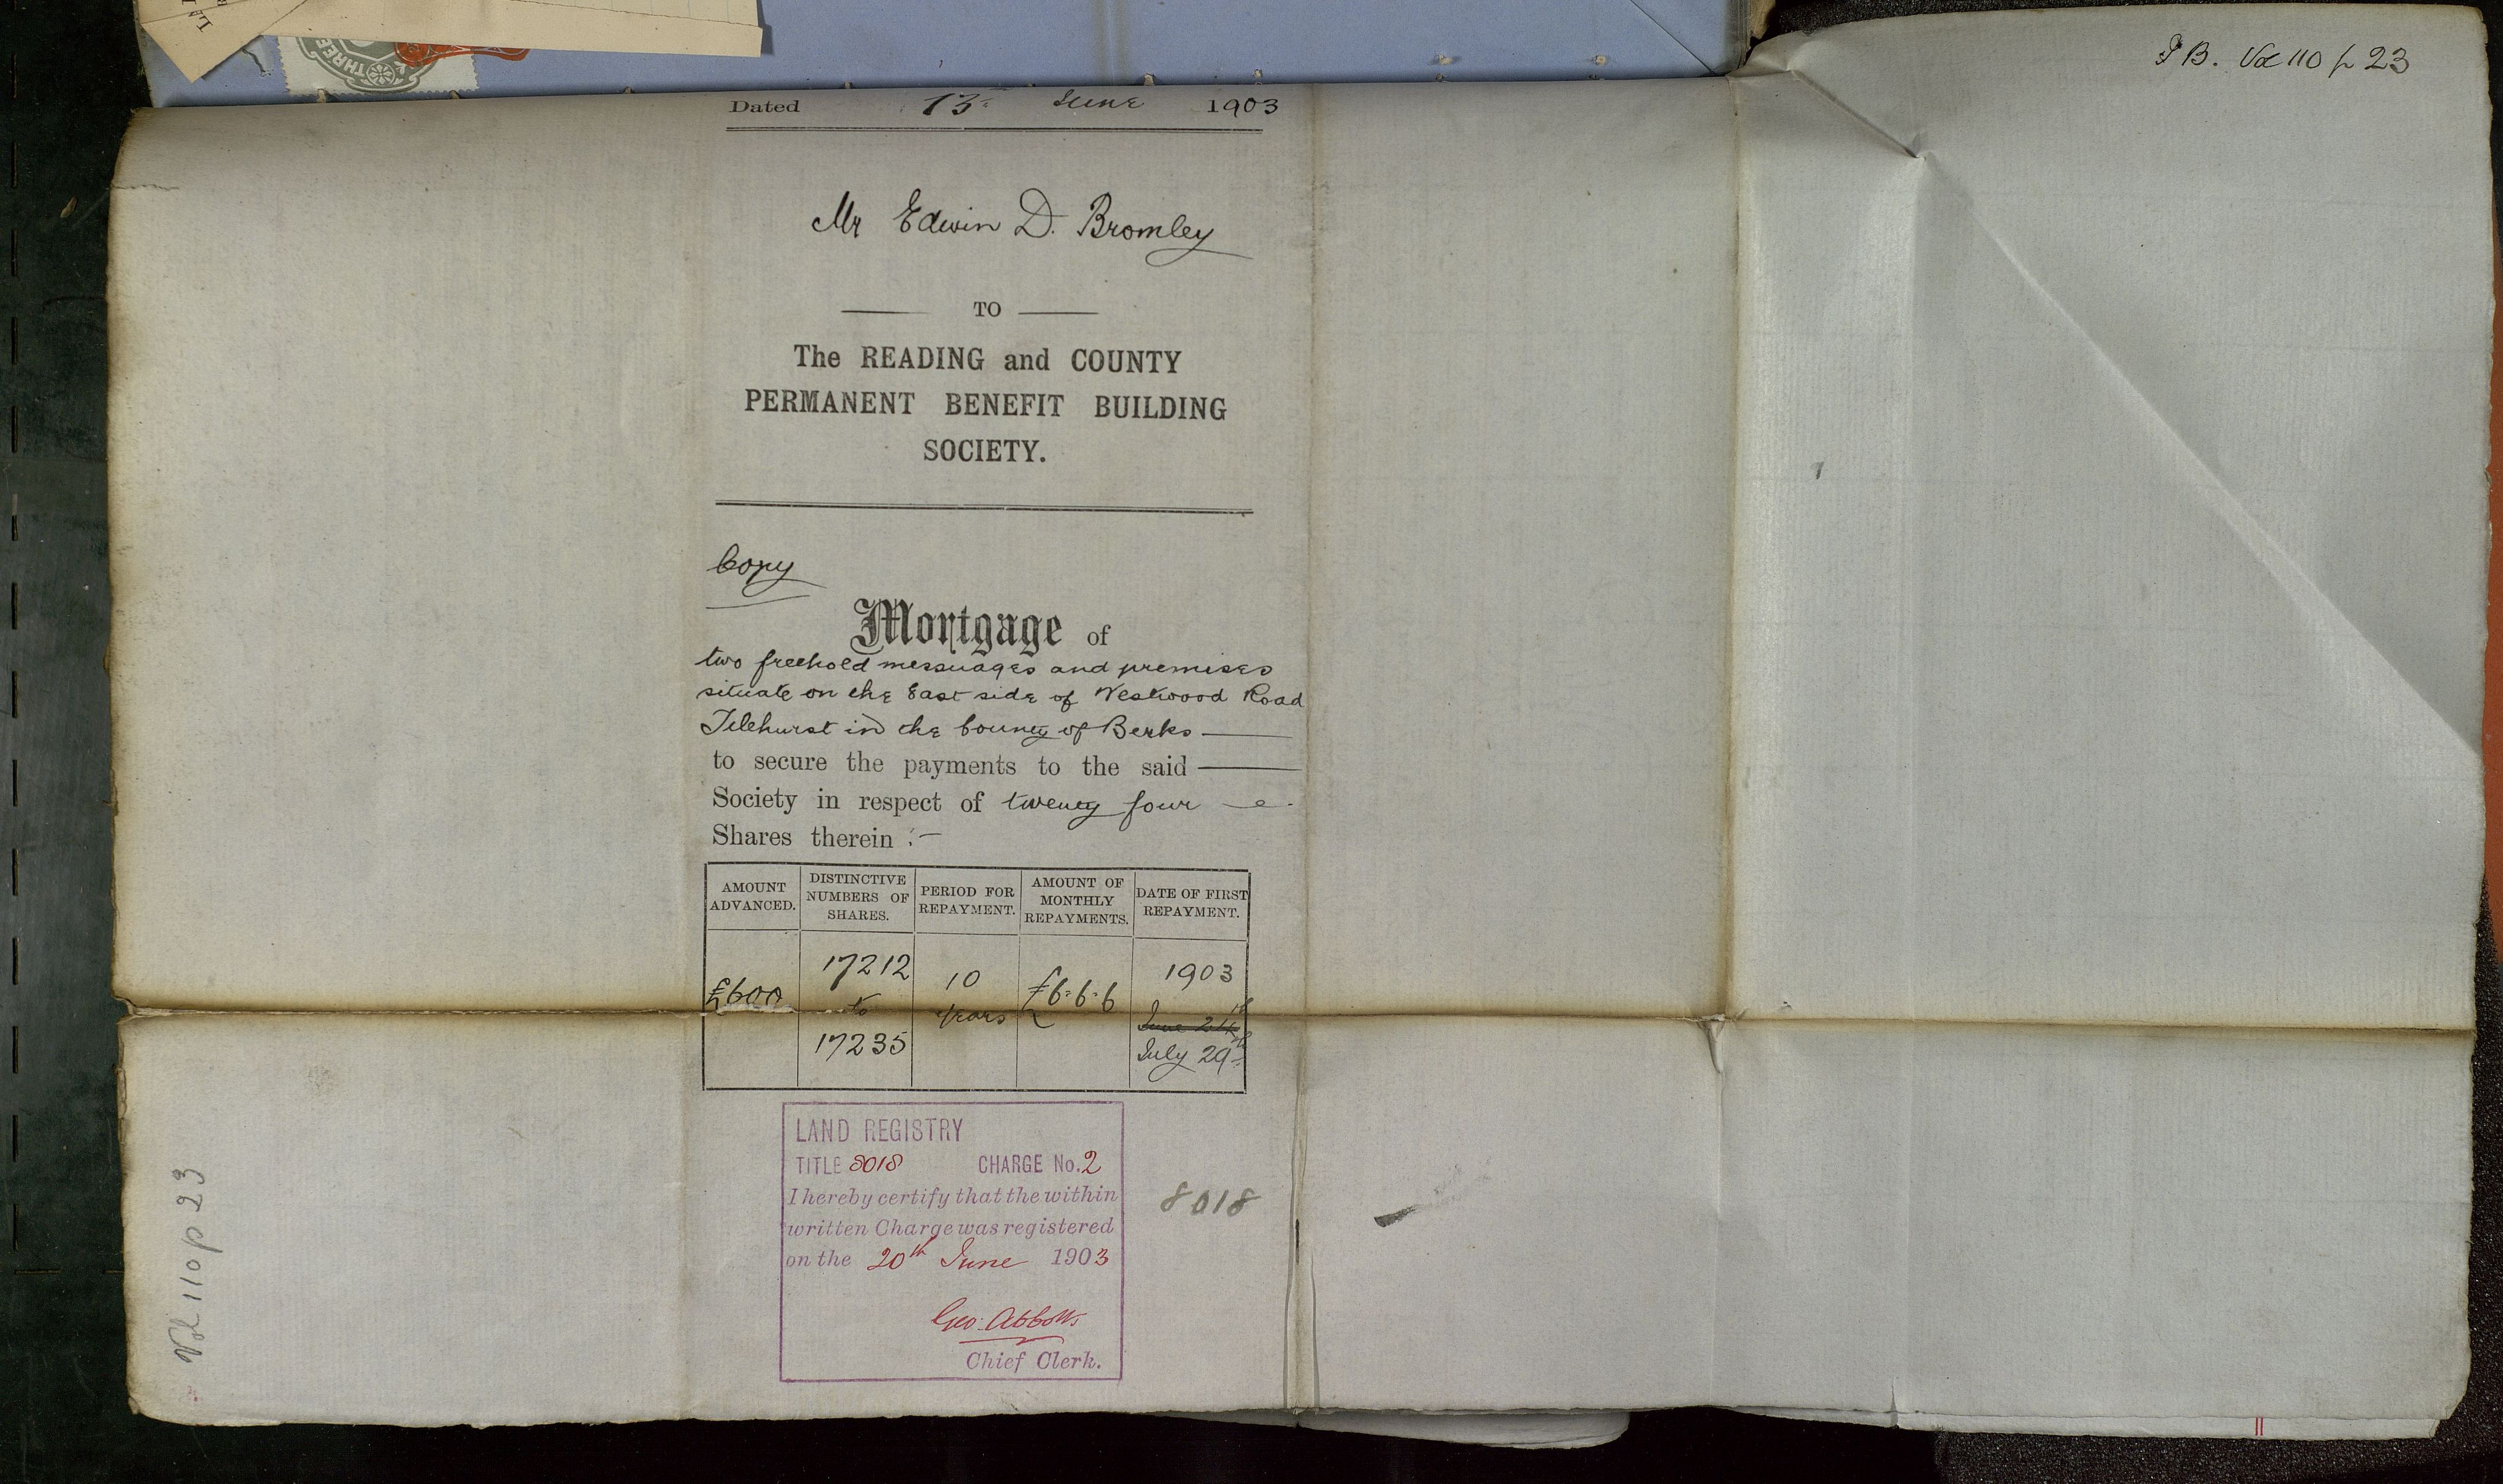 THREE
P B. Vol 110 p 23
Dated 13th June 1903
Mr Edwin D. Bromley
TO
The READING and COUNTY
PERMANENT BENEFIT BUILDING
SOCIETY.
Copy
Mortgage of
two freehold messuages and premises
situate on the East side of Westwood Road
Tilehurst in the County of Berks
to secure the payments to the said
Society in respect of twenty four
Shares therein :-
AMOUNT ADVANCED.
DISTINCTIVE NUMBERS OF SHARES.
PERIOD FOR REPAYMENT.
AMOUNT OF MONTHLY REPAYMENTS.
DATE OF FIRST REPAYMENT.
£600
17212 to 17235
10 years
£6.6.6
1903
June 24th
July 29th
LAND REGISTRY
TITLE 8018 CHARGE No. 2
I hereby certify that the within
written Charge was registered
on the 20th June 1903
Geo. Abbotts
Chief Clerk.
8018
Vol 110 p 23